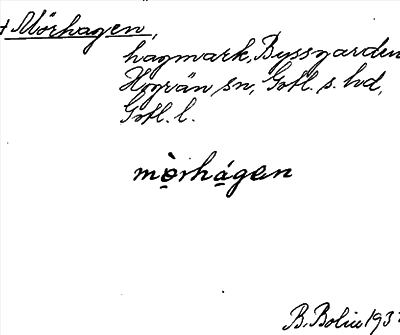 + Mörhagen,
hagmark, Byssgarden
Hogrän sn, Gotl. s. hd,
Gotl. l.
mò̤rhá̤gen
B. Bolin 193